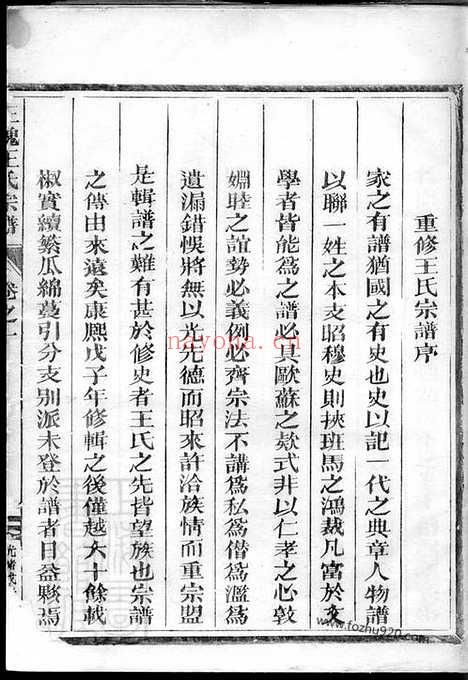 重修王氏宗譜序
家之有譜猶國之有史也史以記一代之典章人物譜
以聯一姓之本支昭穆史則挾班馬之鴻裁凡富於文
學者皆能為之譜必具歐蘇之欵式非以仁孝之心敦
婣睦之誼勢必義例必齊宗法不講為私為僭為濫為
遺漏錯悞將無以光先德而昭來許洽族情而重宗盟
是輯譜之難有甚於修史者王氏之先皆望族也宗譜
之傳由來遠矣康熙戊子年修輯之後僅越六十餘載
椒實續繁瓜綿蔓引分支別派未登於譜者日益夥焉
槐王氏宗譜
卷之一
光緒戊
nayona.cn
www.fozhu920.com